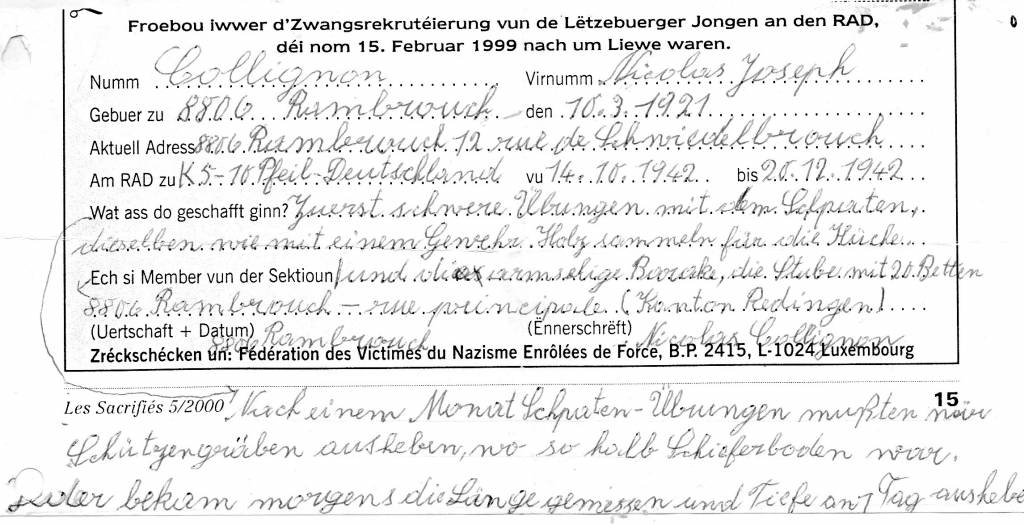 Froebou iwwer d'Zwangsrekrutéierung vun de Lëtzebuerger Jongen an den RAD,
déi nom 15. Februar 1999 nach um Liewe waren.
Numm Collignon Virnumm Nicolas Joseph
Gebuer zu 8806 Rambrouch den 10.3.1921
Aktuell Adress 8806 Rambrouch 12 rue de Schwiedelbrouch
Am RAD zu K5-10 Pfeil-Deutschland vu 14.10.1942 bis 20.12.1942
Wat ass do geschafft ginn? Zuerst schwere Übungen mit dem Spaten,
dieselben wie mit einem Gewehr. Holz sammeln für die Küche
Ech si Member vun der Sektioun und die armselige Barake, die Stube mit 20 Betten
8806 Rambrouch - rue principale (Kanton Redingen)
(Uertschaft + Datum) 8806 Rambrouch (Ënnerschrëft) Nicolas Collignon
Zréckschécken un: Fédération des Victimes du Nazisme Enrôlées de Force, B.P. 2415, L-1024 Luxembourg
Les Sacrifiés 5/2000 Nach einem Monat Spaten-Übungen mußten wir 15
Schützengräben ausheben, wo so halb Schieferboden war.
Jeder bekam morgens die Länge gemessen und Tiefe an 1 Tag aushebe